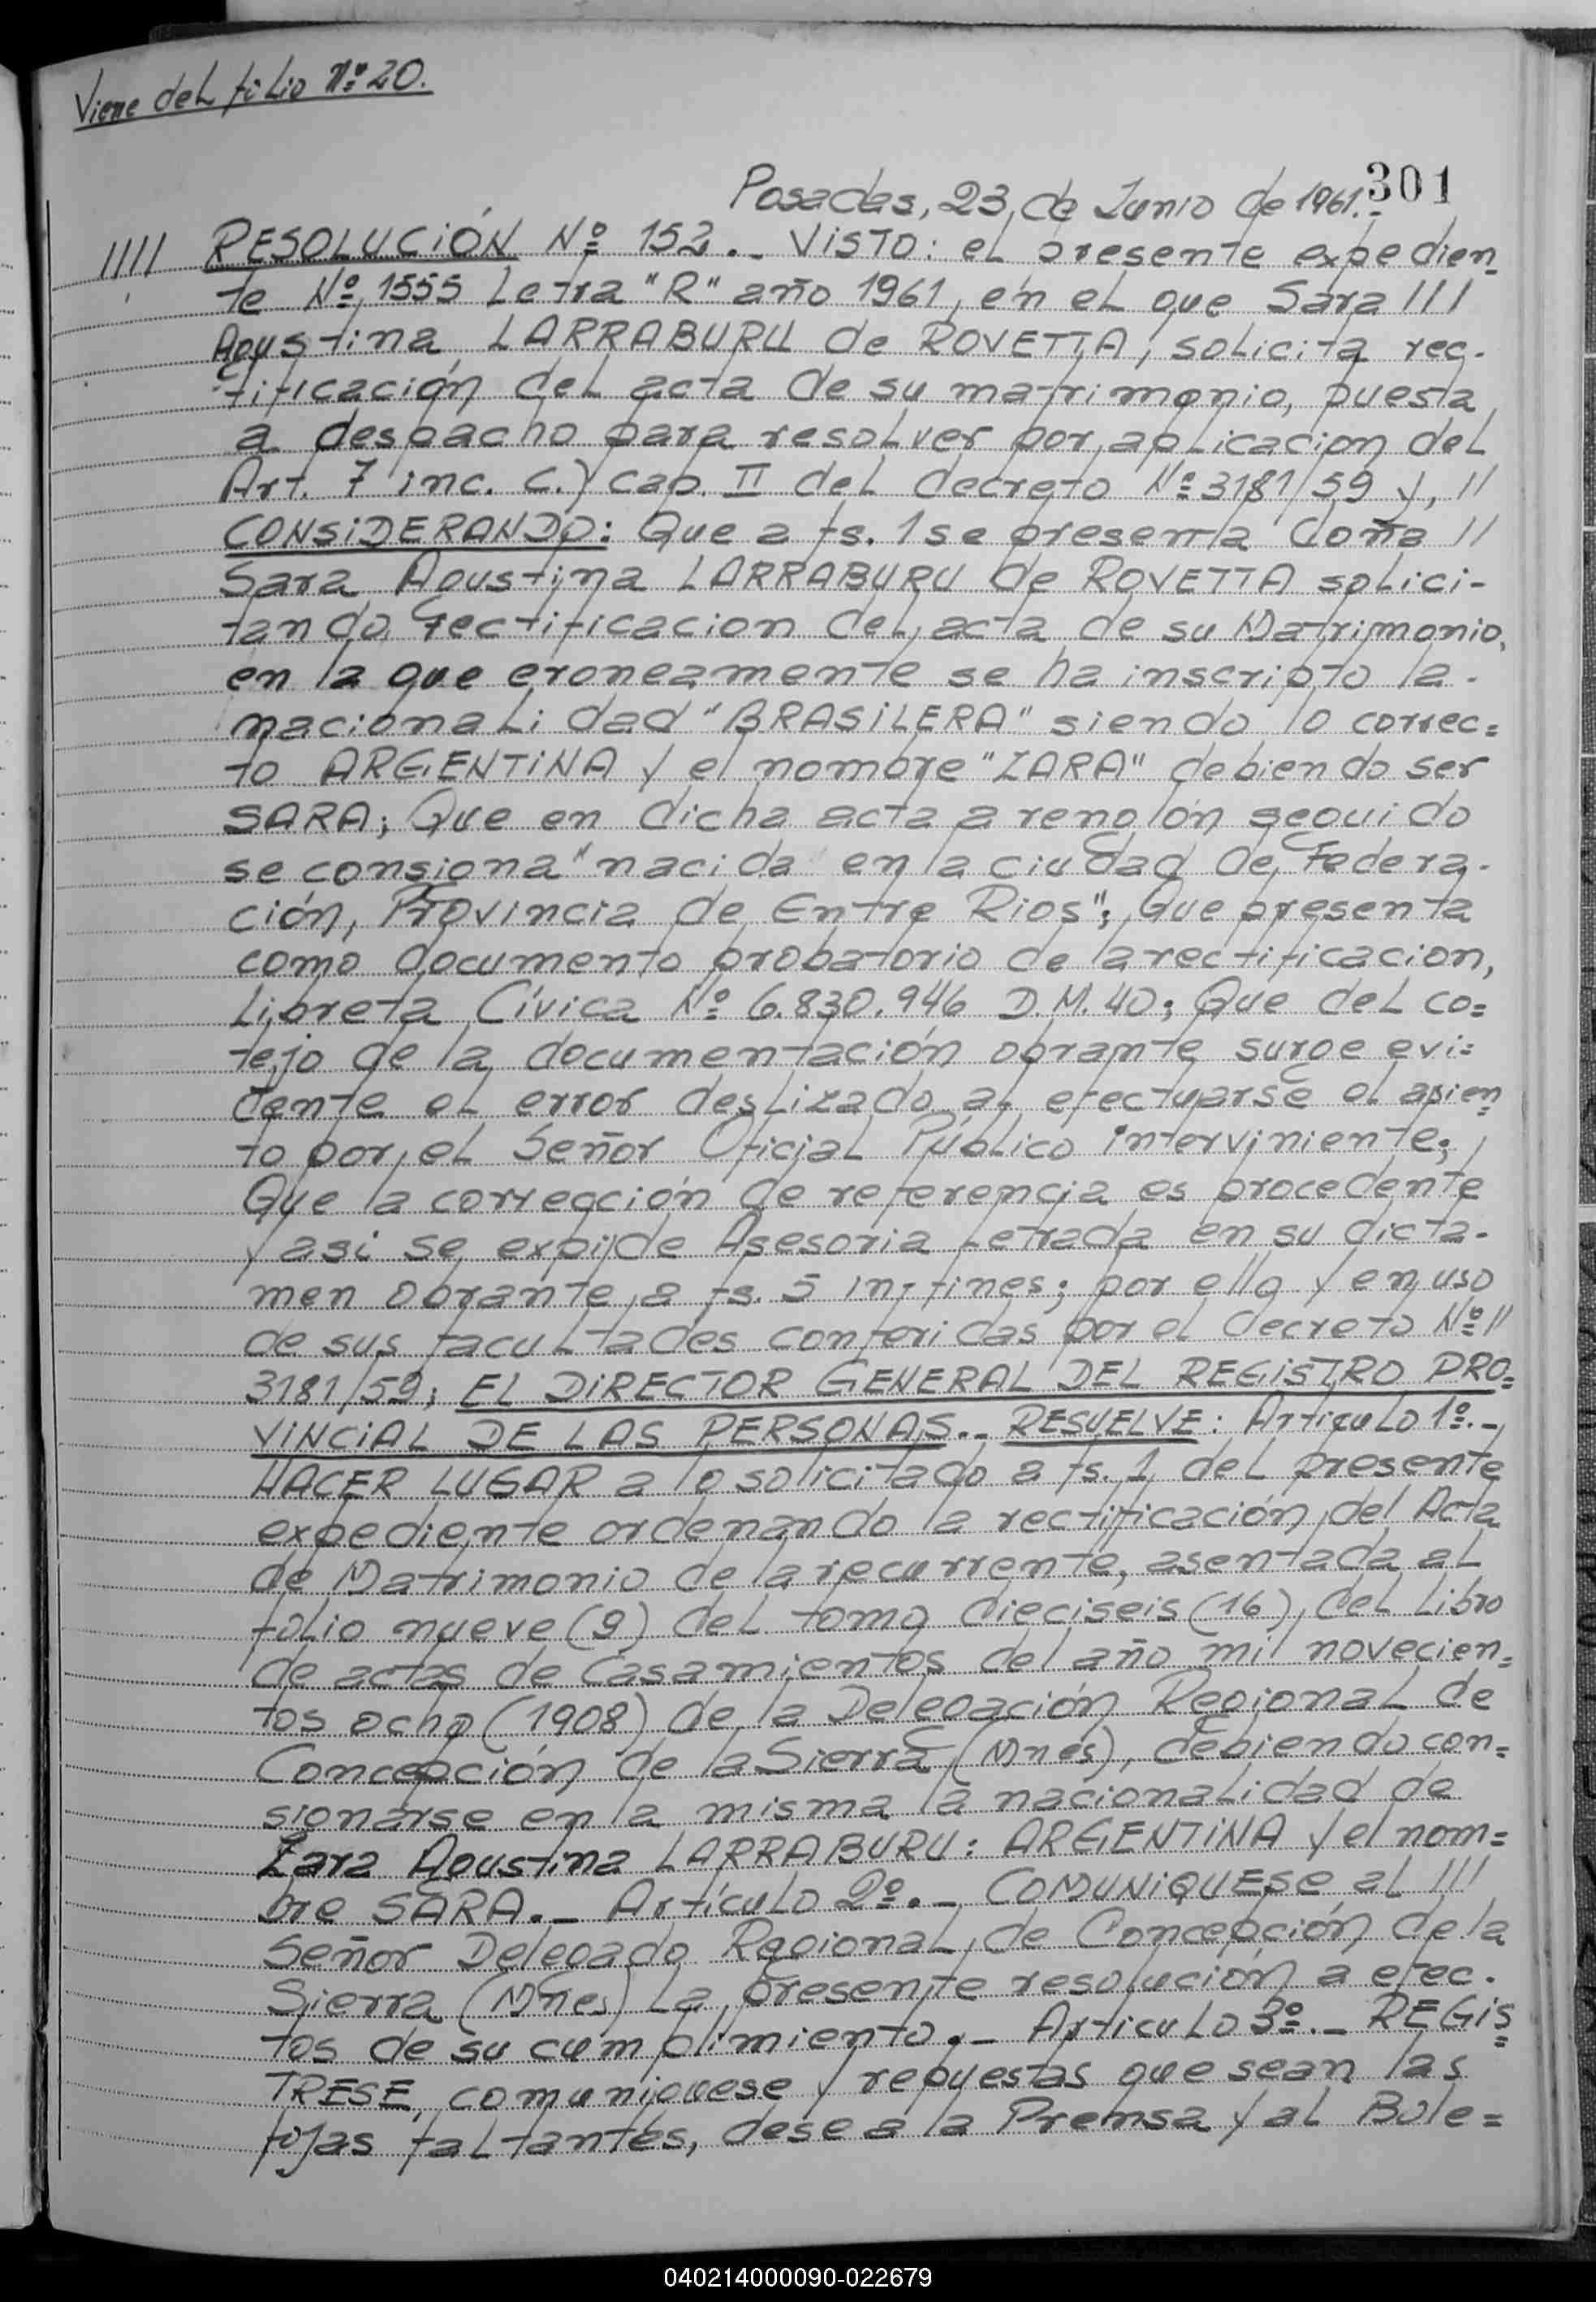 Viene del folio Nº 20.
301
Posadas, 23 de Junio de 1961.-
//// RESOLUCIÓN Nº 152.- VISTO: el presente expedien-
te Nº 1555 Letra "R" año 1961, en el que Sara ///
Agustina LARRABURU de ROVETTA, solicita rec-
tificación del acta de su matrimonio, puesta
a despacho para resolver por aplicacion del
Art. 7 inc. c.) cap. II del decreto Nº 3181/59 y, //
CONSIDERANDO: Que a fs. 1 se presenta doña //
Sara Agustina LARRABURU de ROVETTA solici-
tando rectificacion del acta de su Matrimonio,
en la que eroneamente se ha inscripto la -
nacionalidad "BRASILERA" siendo lo correc=
to ARGENTINA y el nombre "ZARA" debiendo ser
SARA; Que en dicha acta a renglón seguido
se consigna "nacida en la ciudad de Federa-
ción, Provincia de Entre Rios"; Que presenta
como documento probatorio de la rectificacion,
Libreta Cívica Nº 6.830.946 D.M. 40; Que del co=
tejo de la documentación obrante surge evi=
dente el error deslizado al efectuarse el asien=
to por el Señor Oficial Público interviniente;
Que la corrección de referencia es procedente
y asi se expide Asesoria Letrada en su dicta-
men obrante a fs. 5 in-fines; por ello y en uso
de sus facultades conferidas por el decreto Nº //
3181/59; EL DIRECTOR GENERAL DEL REGISTRO PRO=
VINCIAL DE LAS PERSONAS.- RESUELVE: Articulo 1º.-
HACER LUGAR a lo solicitado a fs. 1 del presente
expediente ordenando la rectificación del Acta
de Matrimonio de la recurrente, asentada al
folio nueve (9) del tomo dieciseis (16), del Libro
de actas de Casamientos del año mil novecien=
tos ocho (1908) de la Delegación Regional de
Concepción de la Sierra (Mnes), debiendo con=
signarse en la misma la nacionalidad de
Zara Agustina LARRABURU: ARGENTINA y el nom=
bre SARA.- Artículo 2º.- COMUNIQUESE al ///
Señor Delegado Regional de Concepción de la
Sierra (Mnes) La presente resolución a efec-
tos de su cumplimiento.- Articulo 3º.- REGIS=
TRESE, comuniquese y repuestas que sean las
fojas faltantes, dese a la Prensa y al Bole=
040214000090-022679